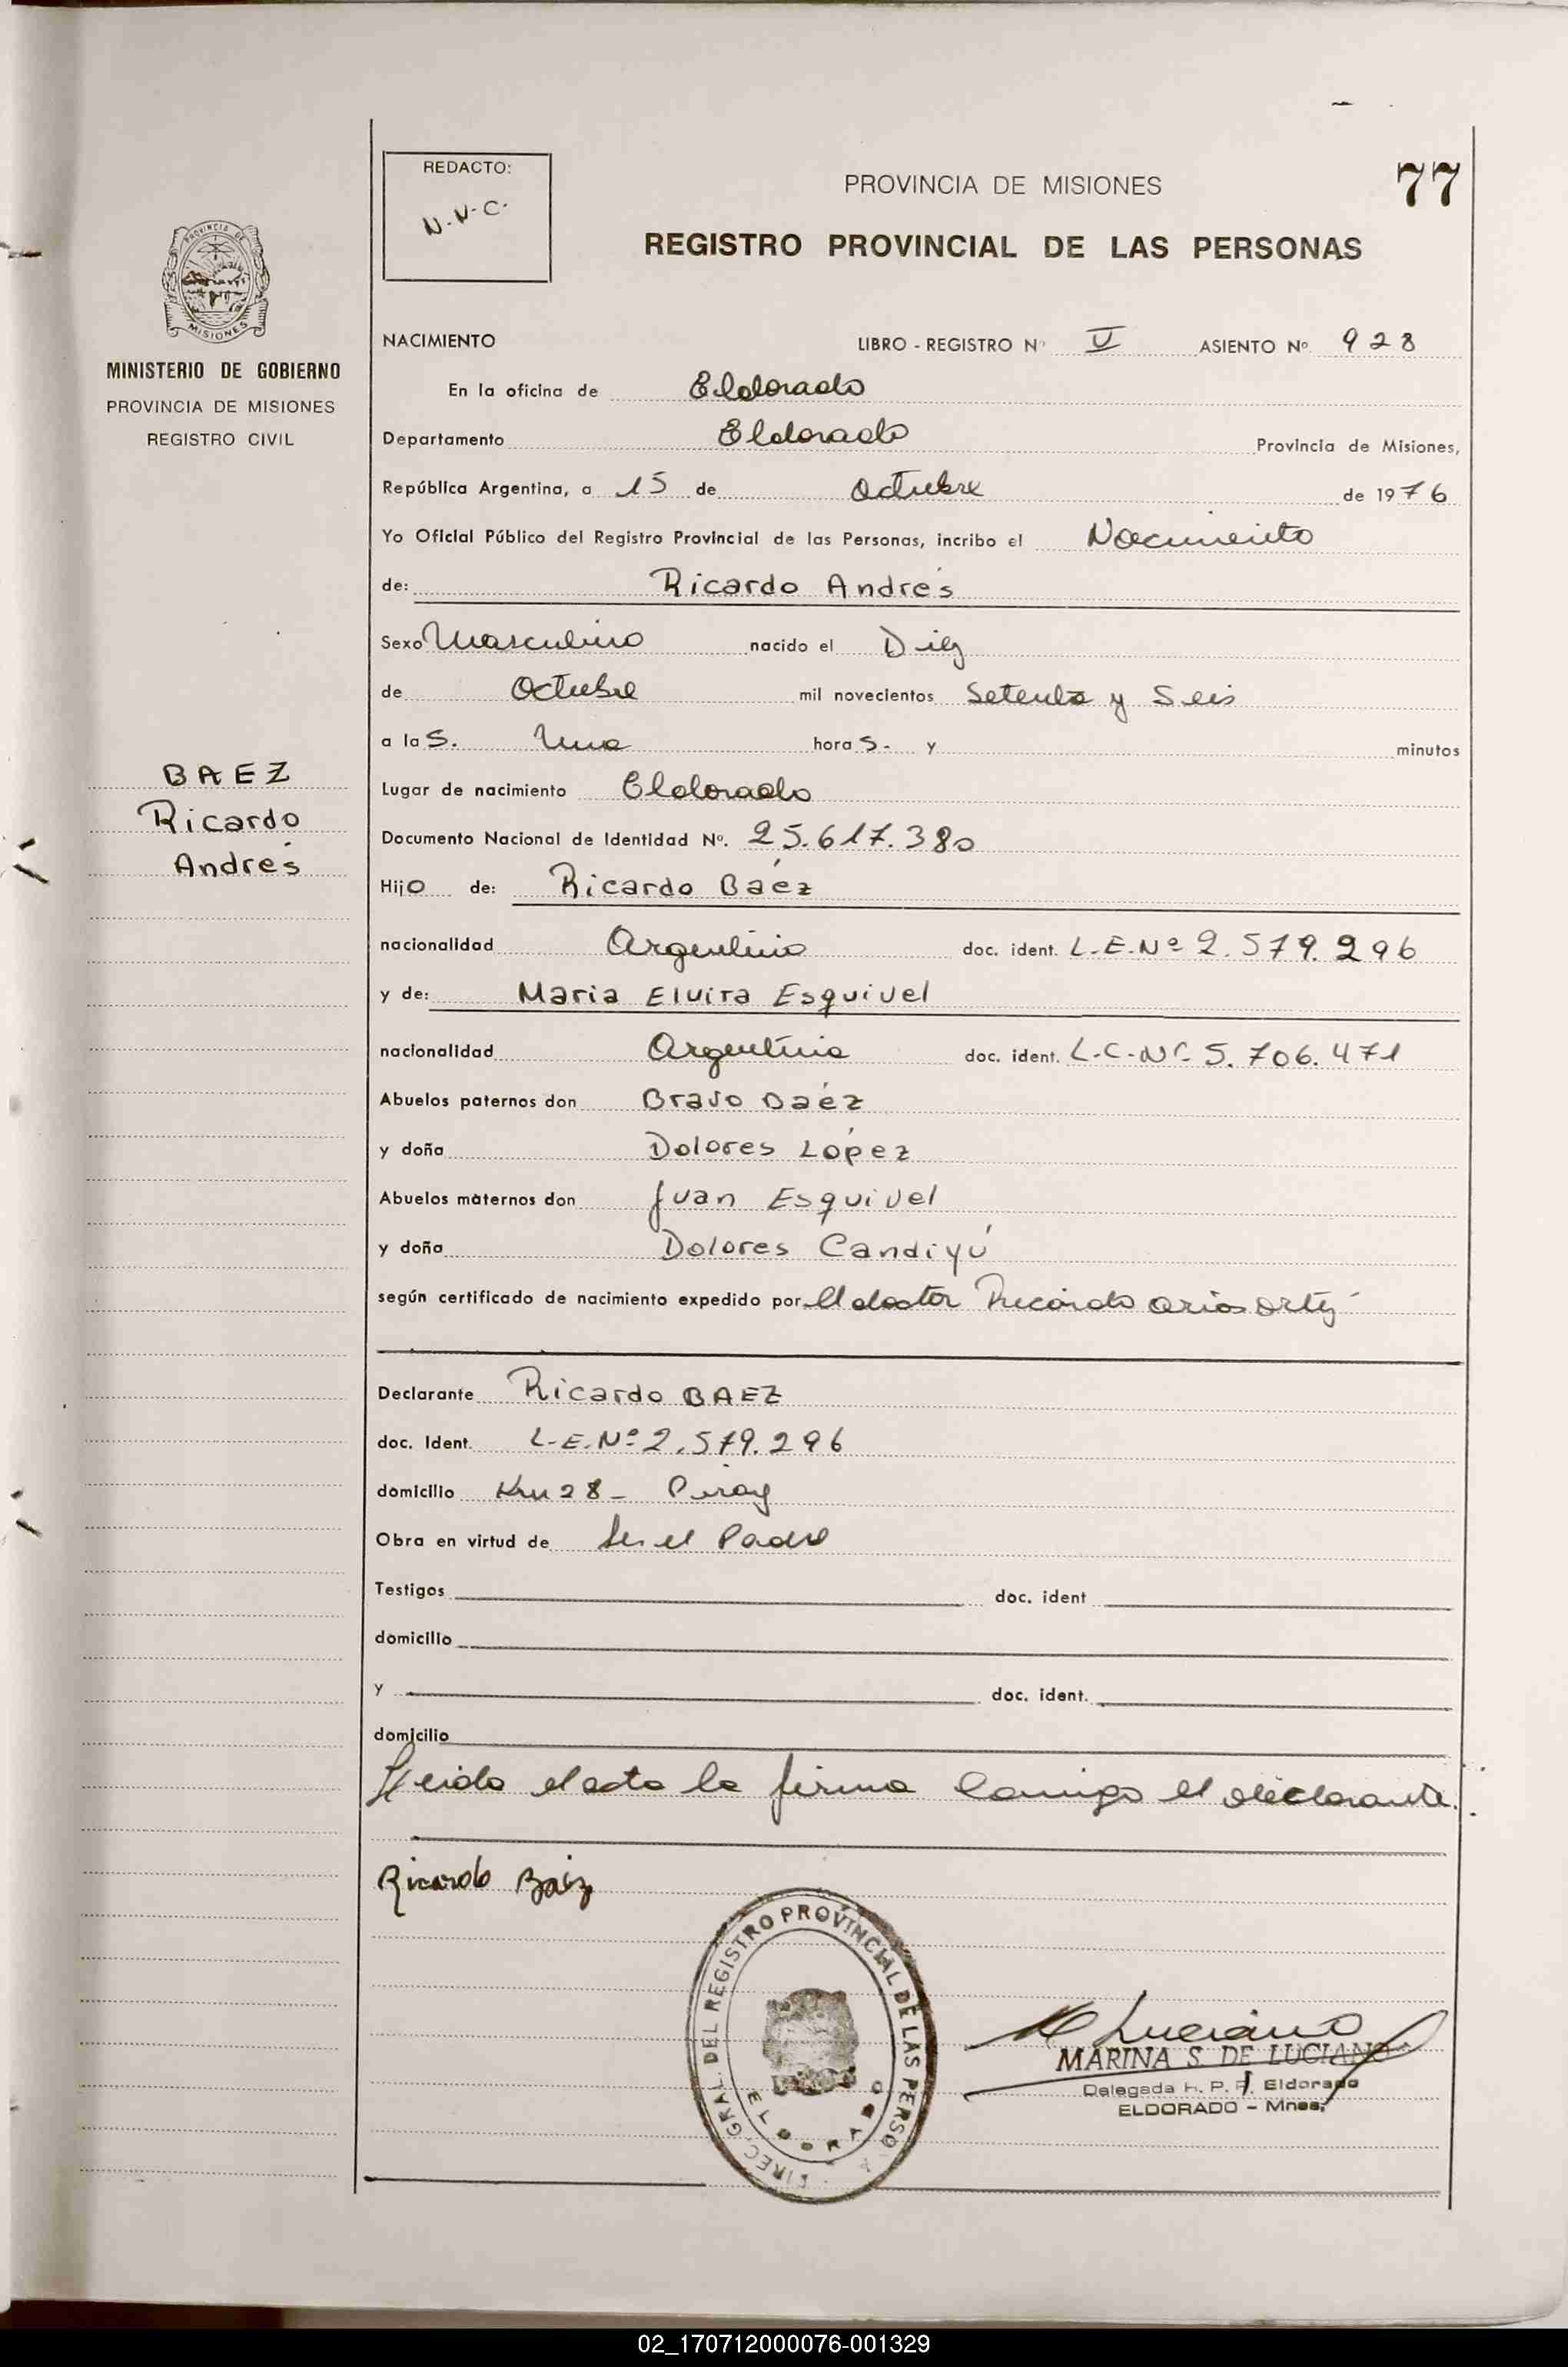 REDACTO:
N.N.C.
PROVINCIA DE MISIONES
77
REGISTRO PROVINCIAL DE LAS PERSONAS
PROVINCIA DE
MISIONES
MINISTERIO DE GOBIERNO
PROVINCIA DE MISIONES
REGISTRO CIVIL
BAEZ
Ricardo
Andrés
NACIMIENTO LIBRO - REGISTRO Nº V ASIENTO Nº 928
En la oficina de Eldorado
Departamento Eldorado Provincia de Misiones,
República Argentina, a 15 de Octubre de 1976
Yo Oficial Público del Registro Provincial de las Personas, incribo el Nacimiento
de: Ricardo Andrés
Sexo Masculino nacido el Diez
de Octubre mil novecientos Setenta y Seis
a las. Una horas. y minutos
Lugar de nacimiento Eldorado
Documento Nacional de Identidad Nº. 25.617.380
Hijo de: Ricardo Báez
nacionalidad Argentino doc. ident. L.E.Nº 2.579.296
y de: Maria Elvira Esquivel
nacionalidad Argentina doc. ident. L.C.Nº 5.706.471
Abuelos paternos don Bravo Báez
y doña Dolores López
Abuelos maternos don Juan Esquivel
y doña Dolores Candiyú
según certificado de nacimiento expedido por El doctor Ricardo arias Ortiz
Declarante Ricardo BAEZ
doc. Ident. L.E.Nº 2.579.296
domicilio Km 28 - Piray
Obra en virtud de Ser el Padre
Testigos doc. ident
domicilio
y doc. ident.
domicilio
Leida el acta la firma Conmigo el declarante.
Ricardo Báez
DIREC. GRAL. DEL REGISTRO PROVINCIAL DE LAS PERSO
ELDORADO
M Luciano
MARINA S. DE LUCIANO
Delegada R. P. P. Eldorado
ELDORADO - Mnes.
02_170712000076-001329